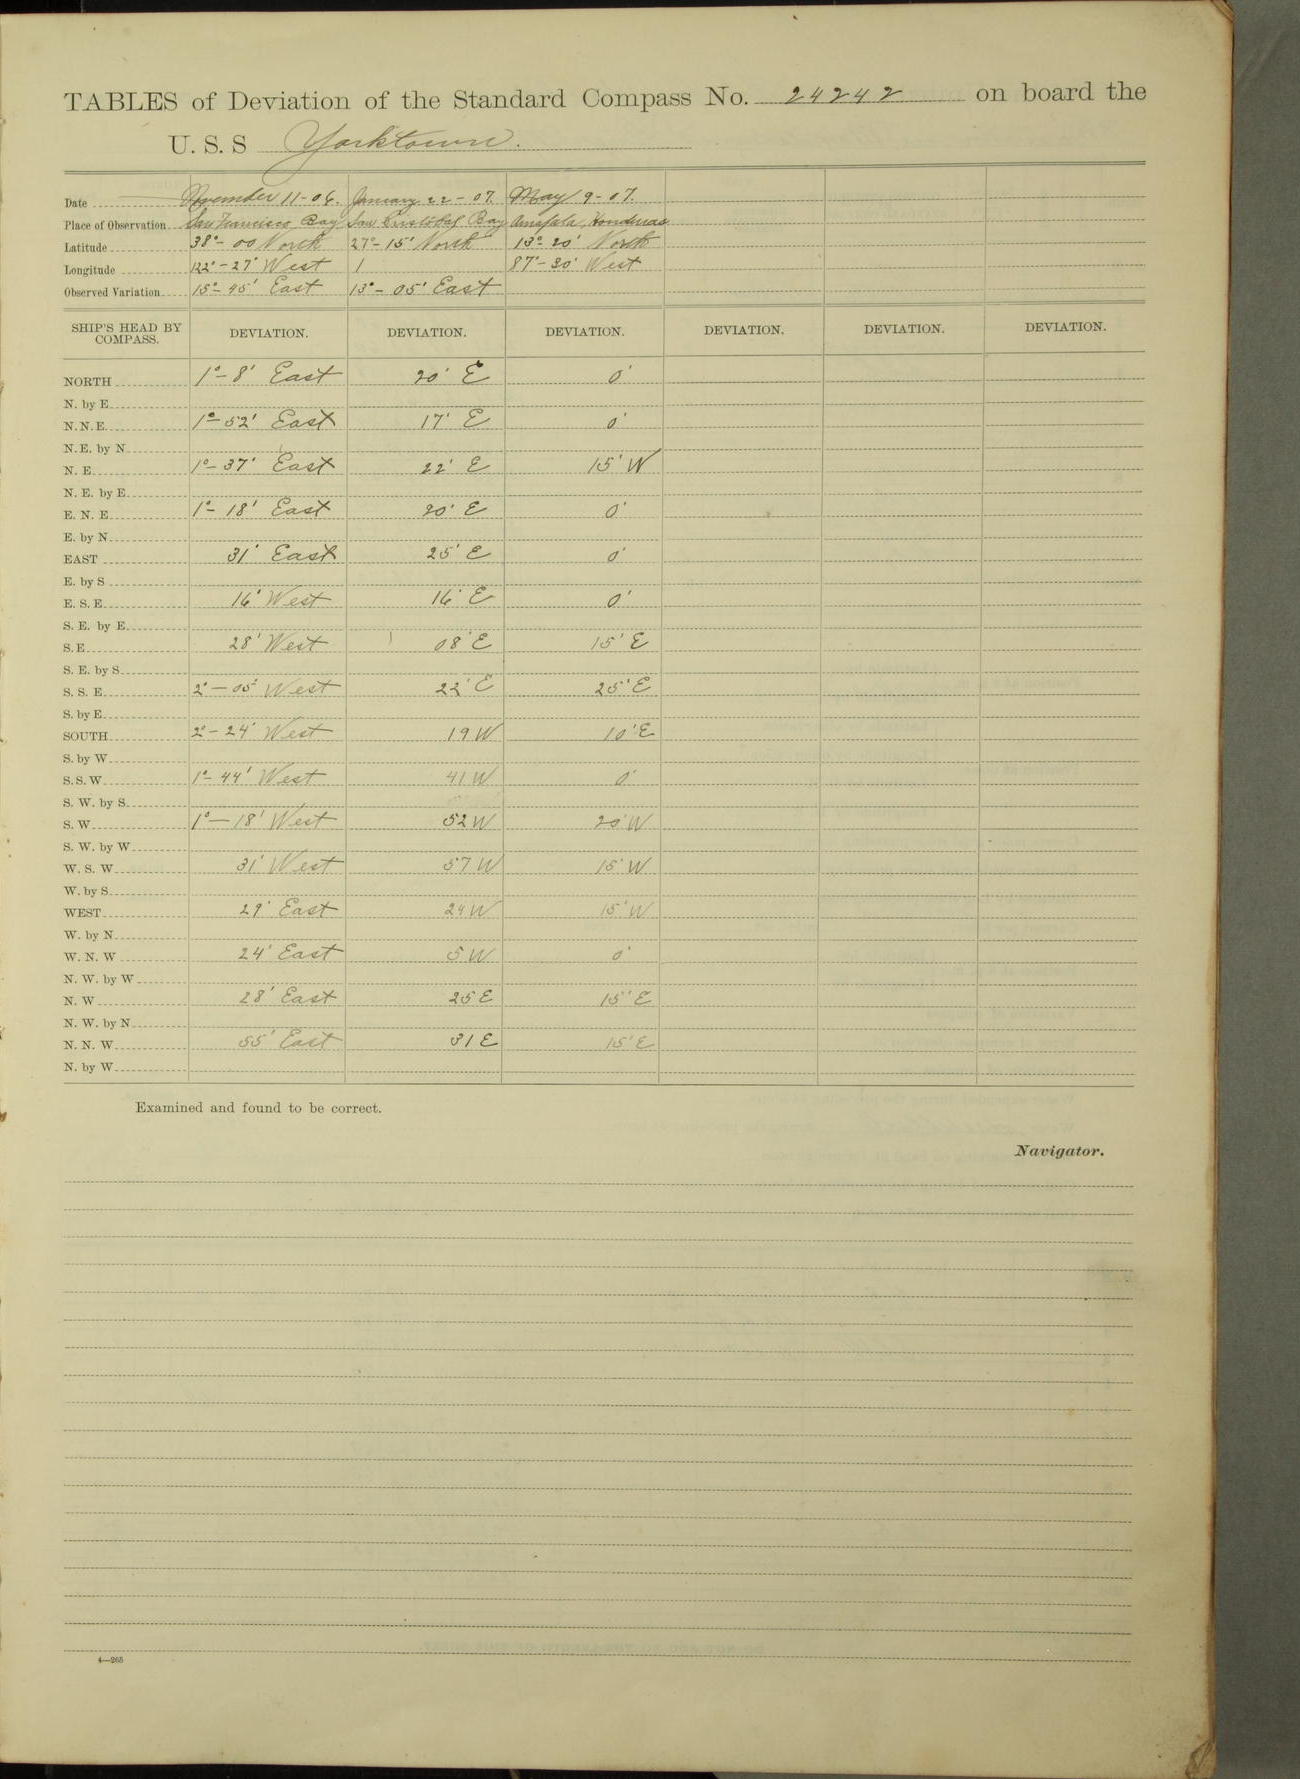 TABLES of Deviation of the Standard Compass No. 24242 on board the
U. S. S Yorktown.
Date November 11-06. January 22-07. May 9-07.
Place of Observation San Francisco Bay San Cristobal Bay Amapala, Honduras
Latitude 38°-00 North 27°-15' North 13°-20' North
Longitude 122°-27' West 1 87°-30' West
Observed Variation 15°-45' East 13°-05' East
SHIP'S HEAD BY COMPASS. DEVIATION. DEVIATION. DEVIATION. DEVIATION. DEVIATION. DEVIATION.
NORTH 1°-8' East 20' E 0'
N. by E
N. N. E. 1°-52' East 17' E 0'
N. E. by N
N. E. 1°-37' East 22' E 15' W
N. E. by E
E. N. E 1°-18' East 20' E 0'
E. by N
EAST 31' East 25' E 0'
E. by S
E. S. E. 16' West 16' E 0'
S. E. by E.
S. E 28' West 08' E 15' E
S. E. by S
S. S. E. 2°-05' West 22' E 25' E
S. by E.
SOUTH 2°-24' West 19 W 10' E
S. by W
S. S. W 1°-44' West 41 W 0'
S. W. by S.
S. W. 1°-18' West 52 W 20' W
S. W. by W
W. S. W 31' West 57 W 15' W
W. by S.
WEST 29' East 24 W 15' W
W. by N
W. N. W 24' East 5 W 0'
N. W. by W
N. W 28' East 25 E 15' E
N. W. by N
N. N. W 55' East 31 E 15' E
N. by W
Examined and found to be correct.
Navigator.
4—265